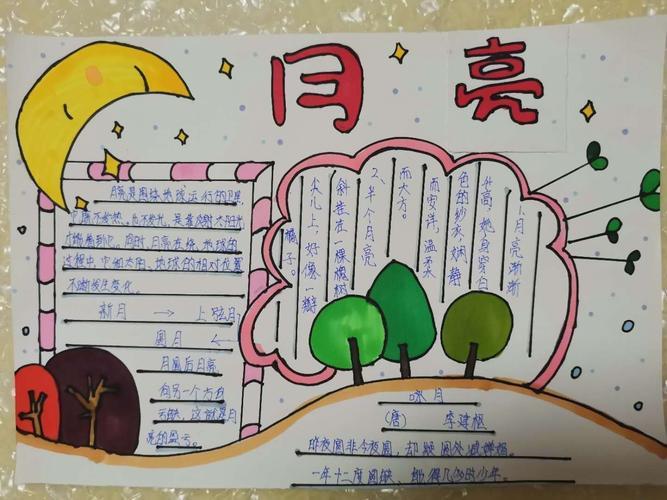 月亮
月亮是围绕地球运行的卫星
它既不发热,也不发光,是靠反射太阳光
才能看到它。同时,月亮在绕地球的
过程中它和太阳、地球的相对位置
不断发生变化。
新月 → 上弦月
圆月 ←
月圆后月亮
向另一个方向
亏缺,这就是月
亮的盈亏。
1、月亮渐渐
升高,她身穿白
色的纱衣,娴静
而安详,温柔
而大方。
2、半个月亮
斜挂在一棵槐树
尖儿上,好像一瓣
橘子。
咏月
(唐) 李建枢
昨夜圆非今夜圆,却疑圆处减婵娟。
一年十二度圆缺,能得几多时少年。